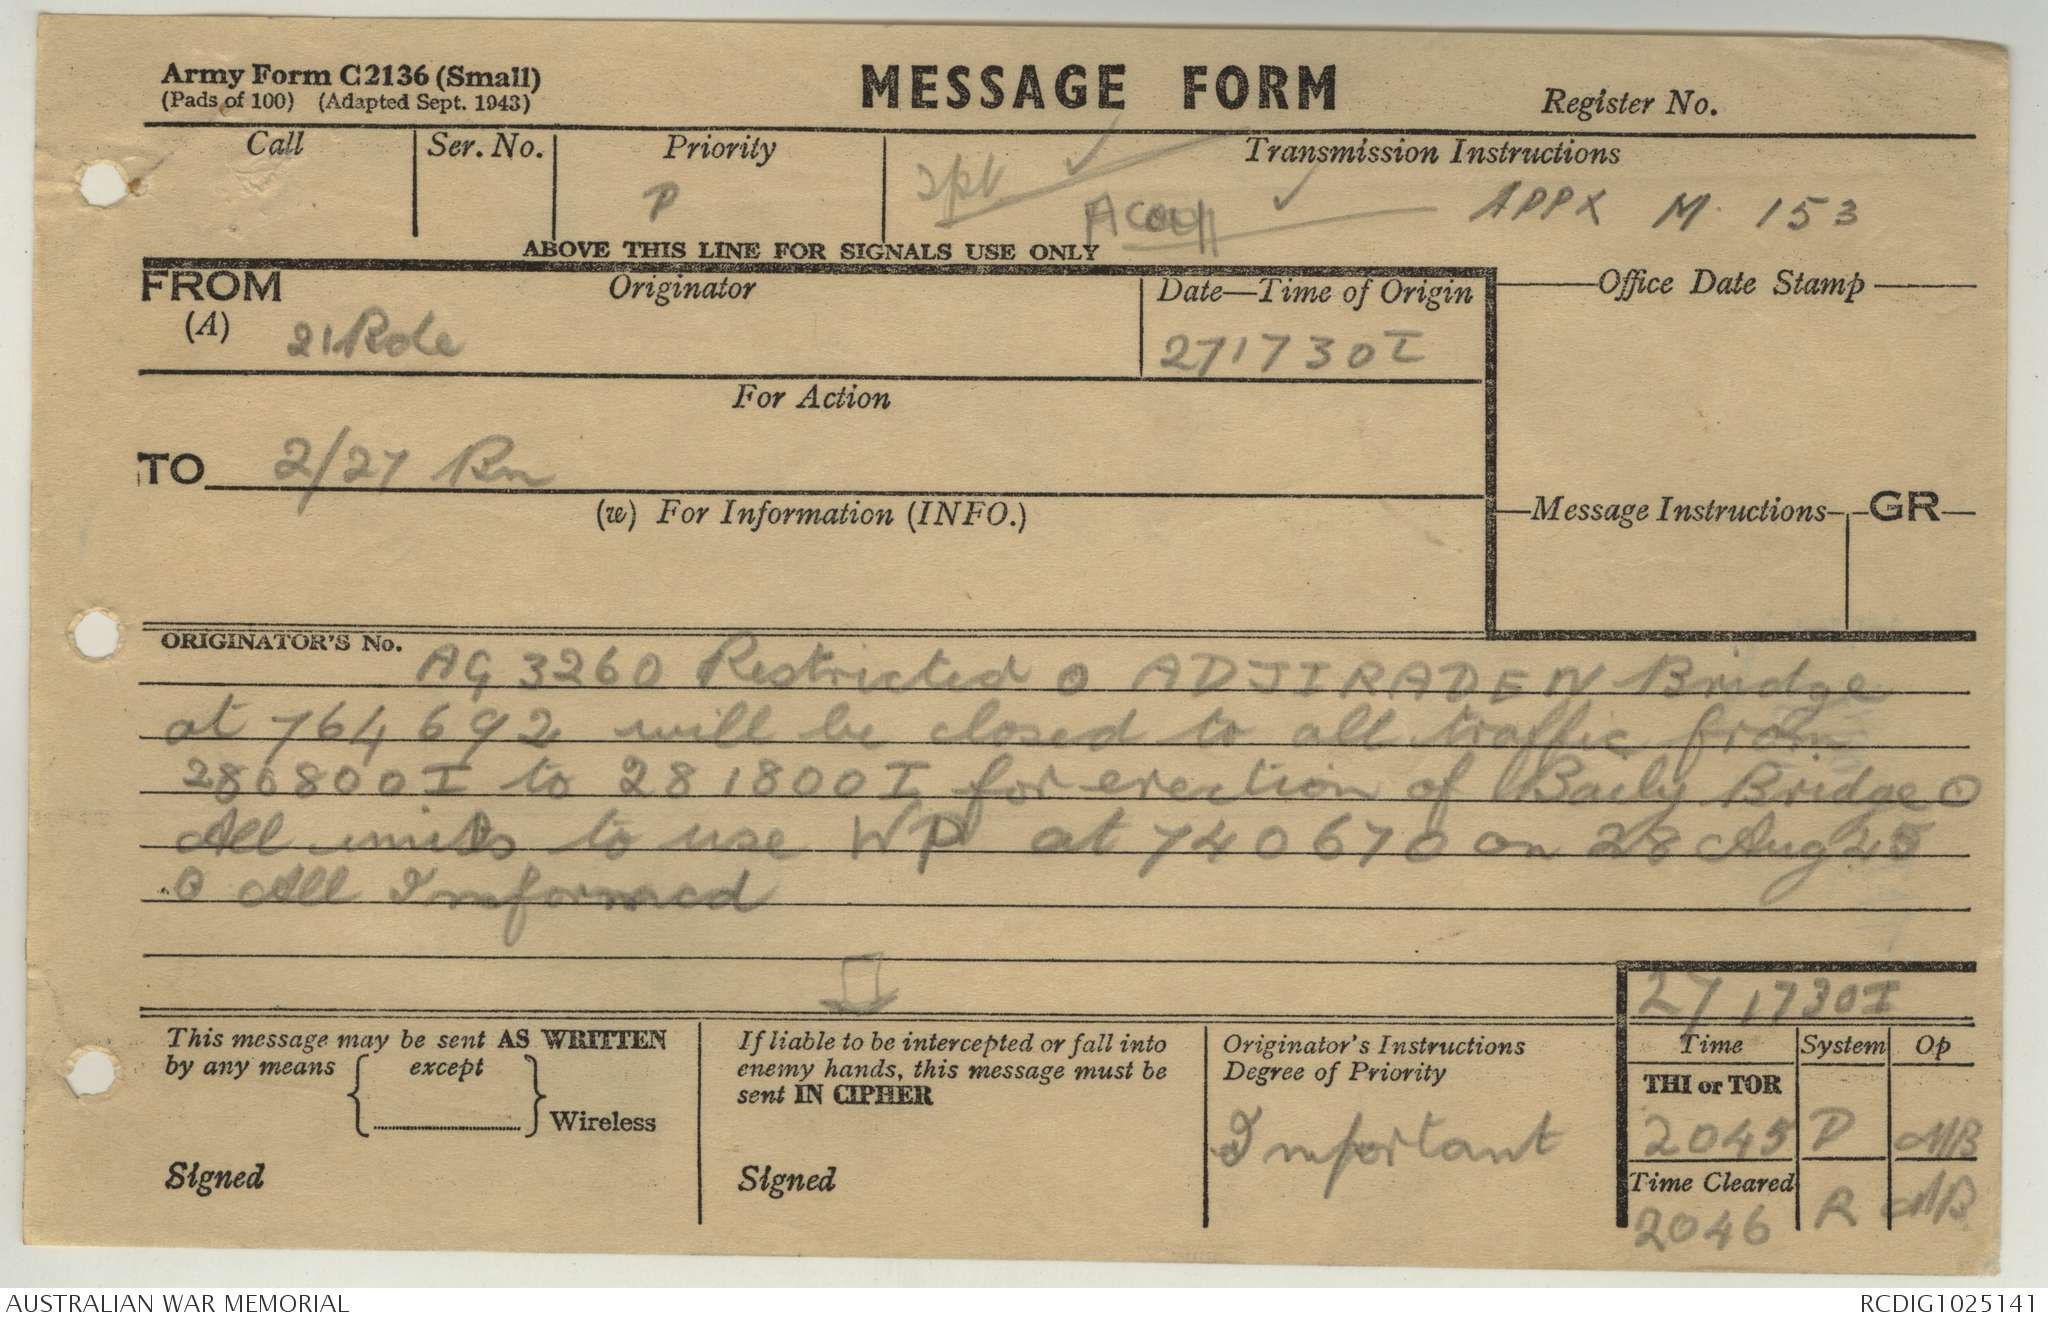 Army Form C2136 (Small)
(Pads of 100) (Adapted Sept. 1943)
MESSAGE FORM
Register No.
Call
Ser. No.
Priority
Transmission Instructions
P
APPX M. 153
ABOVE THIS LINE FOR SIGNALS USE ONLY
FROM
(A)
Originator
Date—Time of Origin
Office Date Stamp
21 Bde
271730I
For Action
TO 2/27 Bn
(w) For Information (INFO.)
Message Instructions
GR
ORIGINATOR'S No.
AG 3260 Restricted O ADJIRADEN Bridge
at 764692 will be closed to all traffic from
280800I to 281800I for erection of Baily Bridge O
All units to use WP at 740670 on 28 Aug 45
O All Informed
27 1730I
This message may be sent AS WRITTEN
by any means except
Wireless
Signed
If liable to be intercepted or fall into
enemy hands, this message must be
sent IN CIPHER
Signed
Originator's Instructions
Degree of Priority
Important
Time System Op
THI or TOR
2045 P MB
Time Cleared
2046 R MB
AUSTRALIAN WAR MEMORIAL
RCDIG1025141